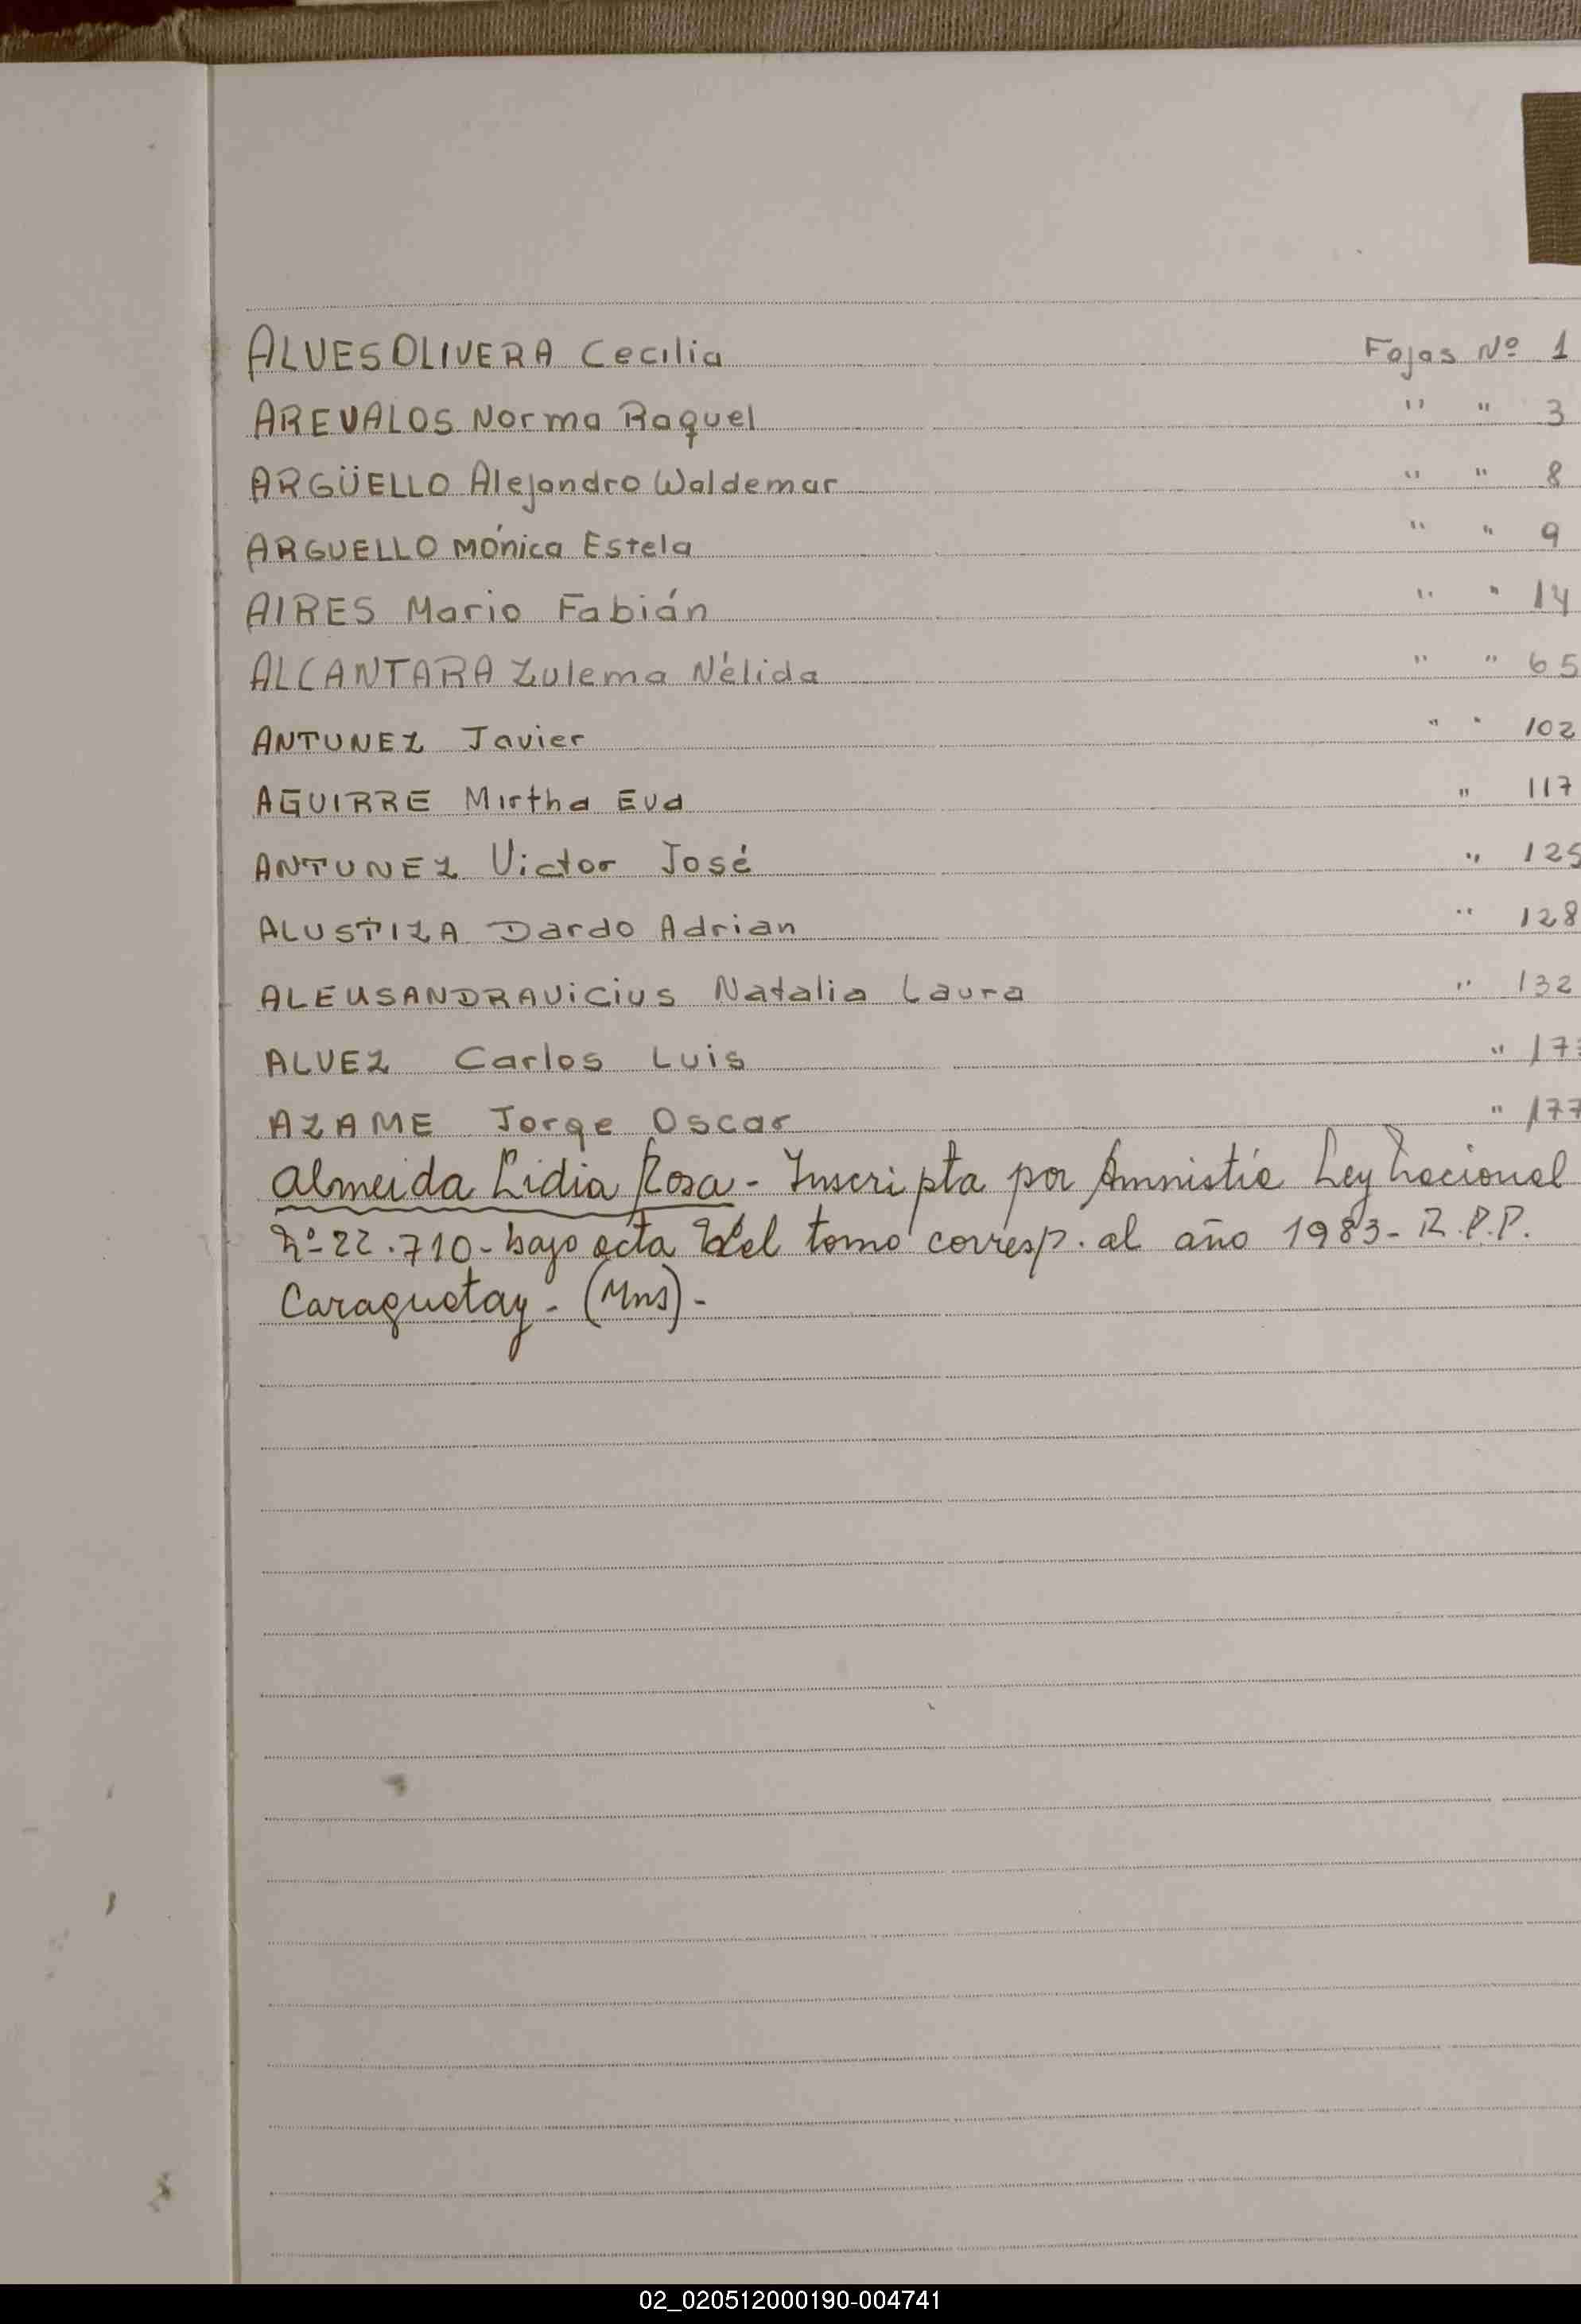 ALVES OLIVERA Cecilia Fojas Nº 1
AREVALOS Norma Raquel " " 3
ARGÜELLO Alejandro Waldemar " " 8
ARGUELLO Mónica Estela " " 9
AIRES Mario Fabián " " 14
ALCANTARA Zulema Nélida " " 65
ANTUNEZ Javier " " 102
AGUIRRE Mirtha Eva " 117
ANTUNEZ Victor José " 125
ALUSTIZA Dardo Adrian " 128
ALEUSANDRAViCiUS Natalia Laura " 132
ALVEZ Carlos Luis "
AZAME Jorge Oscar " 177
Almeida Lidia Rosa - Inscripta por Amnistía Ley Nacional
Nº 22.710 - bajo acta del tomo corresp. al año 1983 - R.P.P.
Caraguatay - (Mns) -
02_020512000190-004741